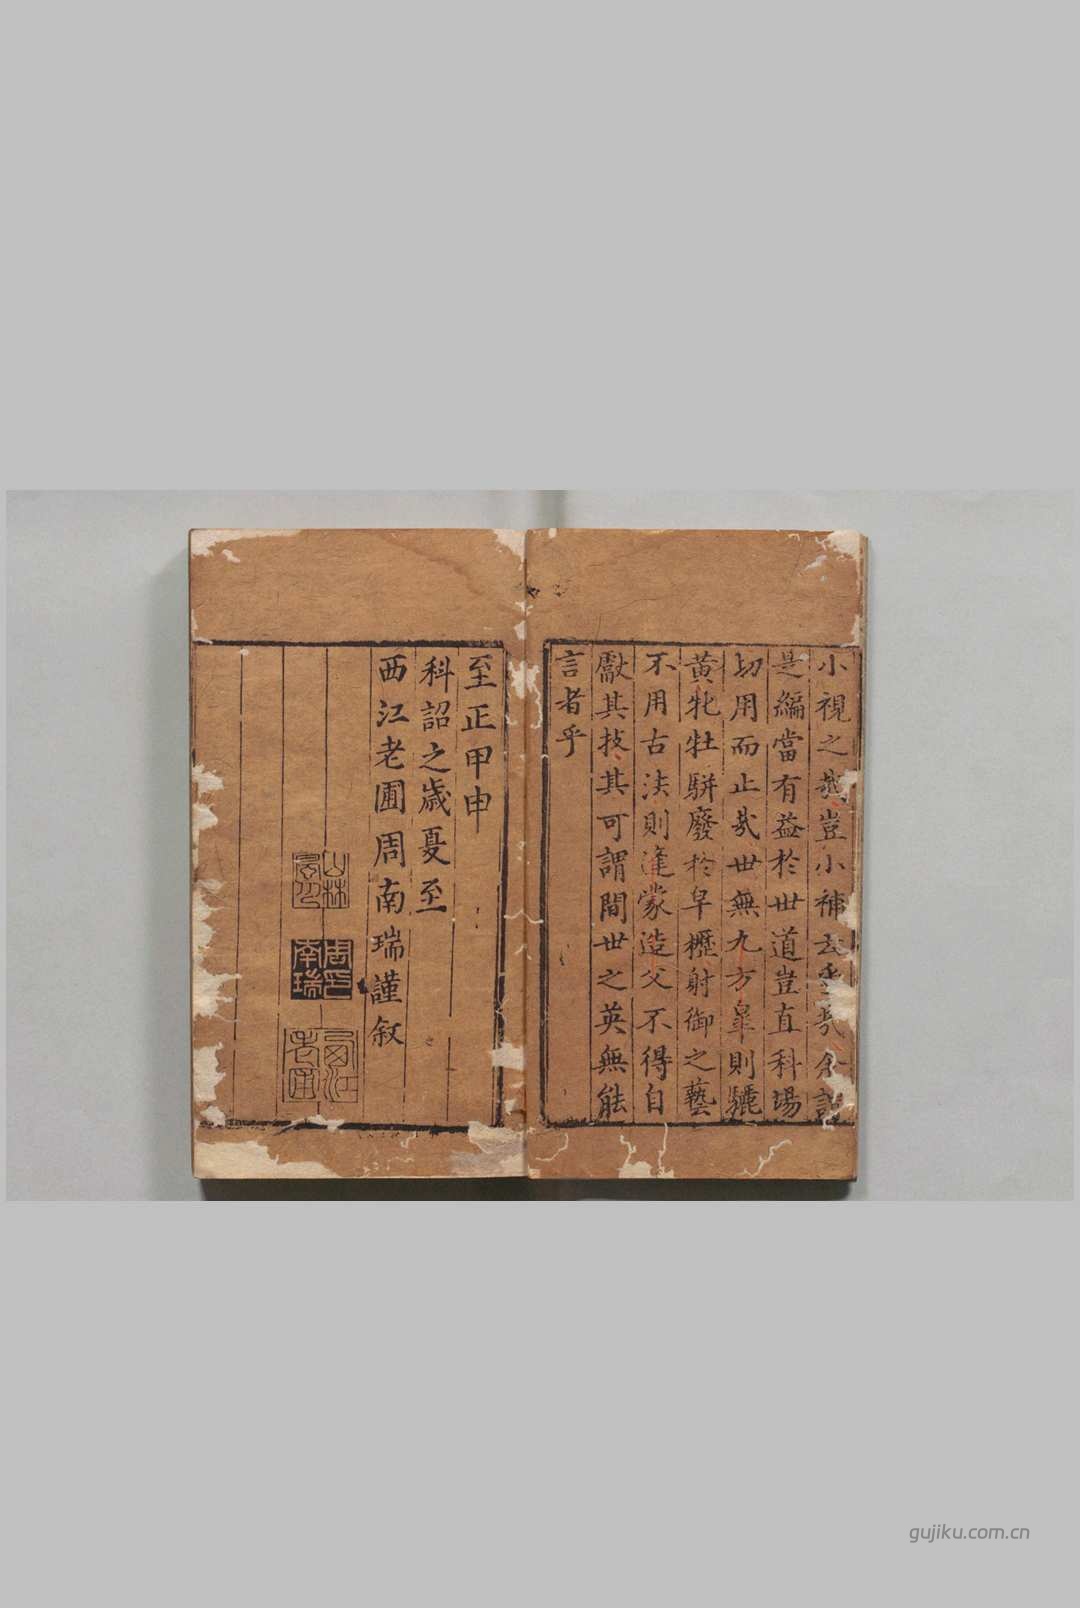 小視之哉豈小補云乎哉余謂
是編當有益於世道豈直科場
切用而止哉世無九方皐則驪
黄牝牡駢廢於皁櫪射御之藝
不用古法則逢蒙造父不得自
獻其技其可謂間世之英無能
言者乎
至正甲申
科詔之歳夏至
西江老圃周南瑞謹叙
周印南瑞
西江老圃
gujiku.com.cn